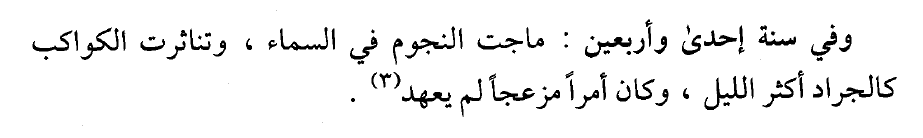 وفي سنة إحدىٰ وأربعين : ماجت النجوم في السماء ، وتناثرت الكواكب
كالجراد أكثر الليل ، وكان أمراً مزعجاً لم يعهد(٣) .